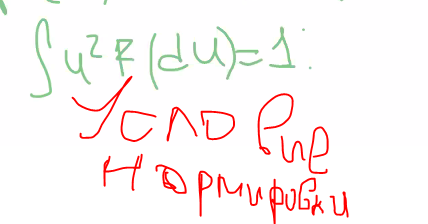 ∫u²F(du)=1
Условие
нормировки